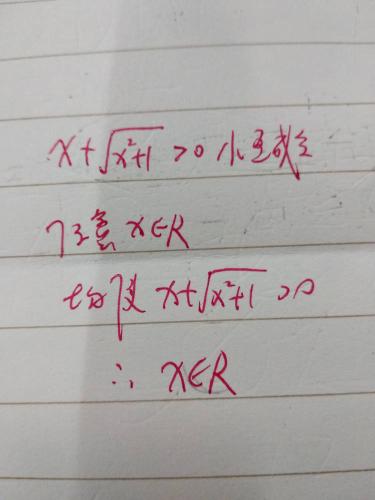 x+√(x²+1) >0 恒成立
任意 x∈R
均使 x+√(x²+1) >0
∴ x∈R